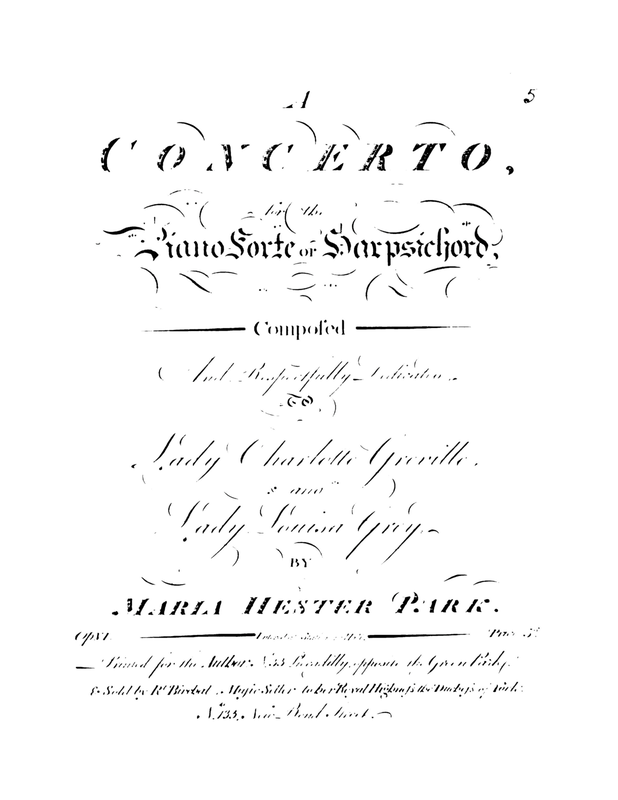 A
5
CONCERTO,
for the
Piano Forte or Harpsichord,
Compoſed
And Respectfully Dedicated
TO
Lady Charlotte Greville.
and
Lady Louisa Grey.
BY
MARIA HESTER PARK.
Op VI.
Price 5s
Printed for the Author No. 33 Piccadilly, opposite the Green Park,
& Sold by Rt. Birchal Muſic Seller to her Royal Highneſs the Ducheſs of York
No. 133, New Bond Street.